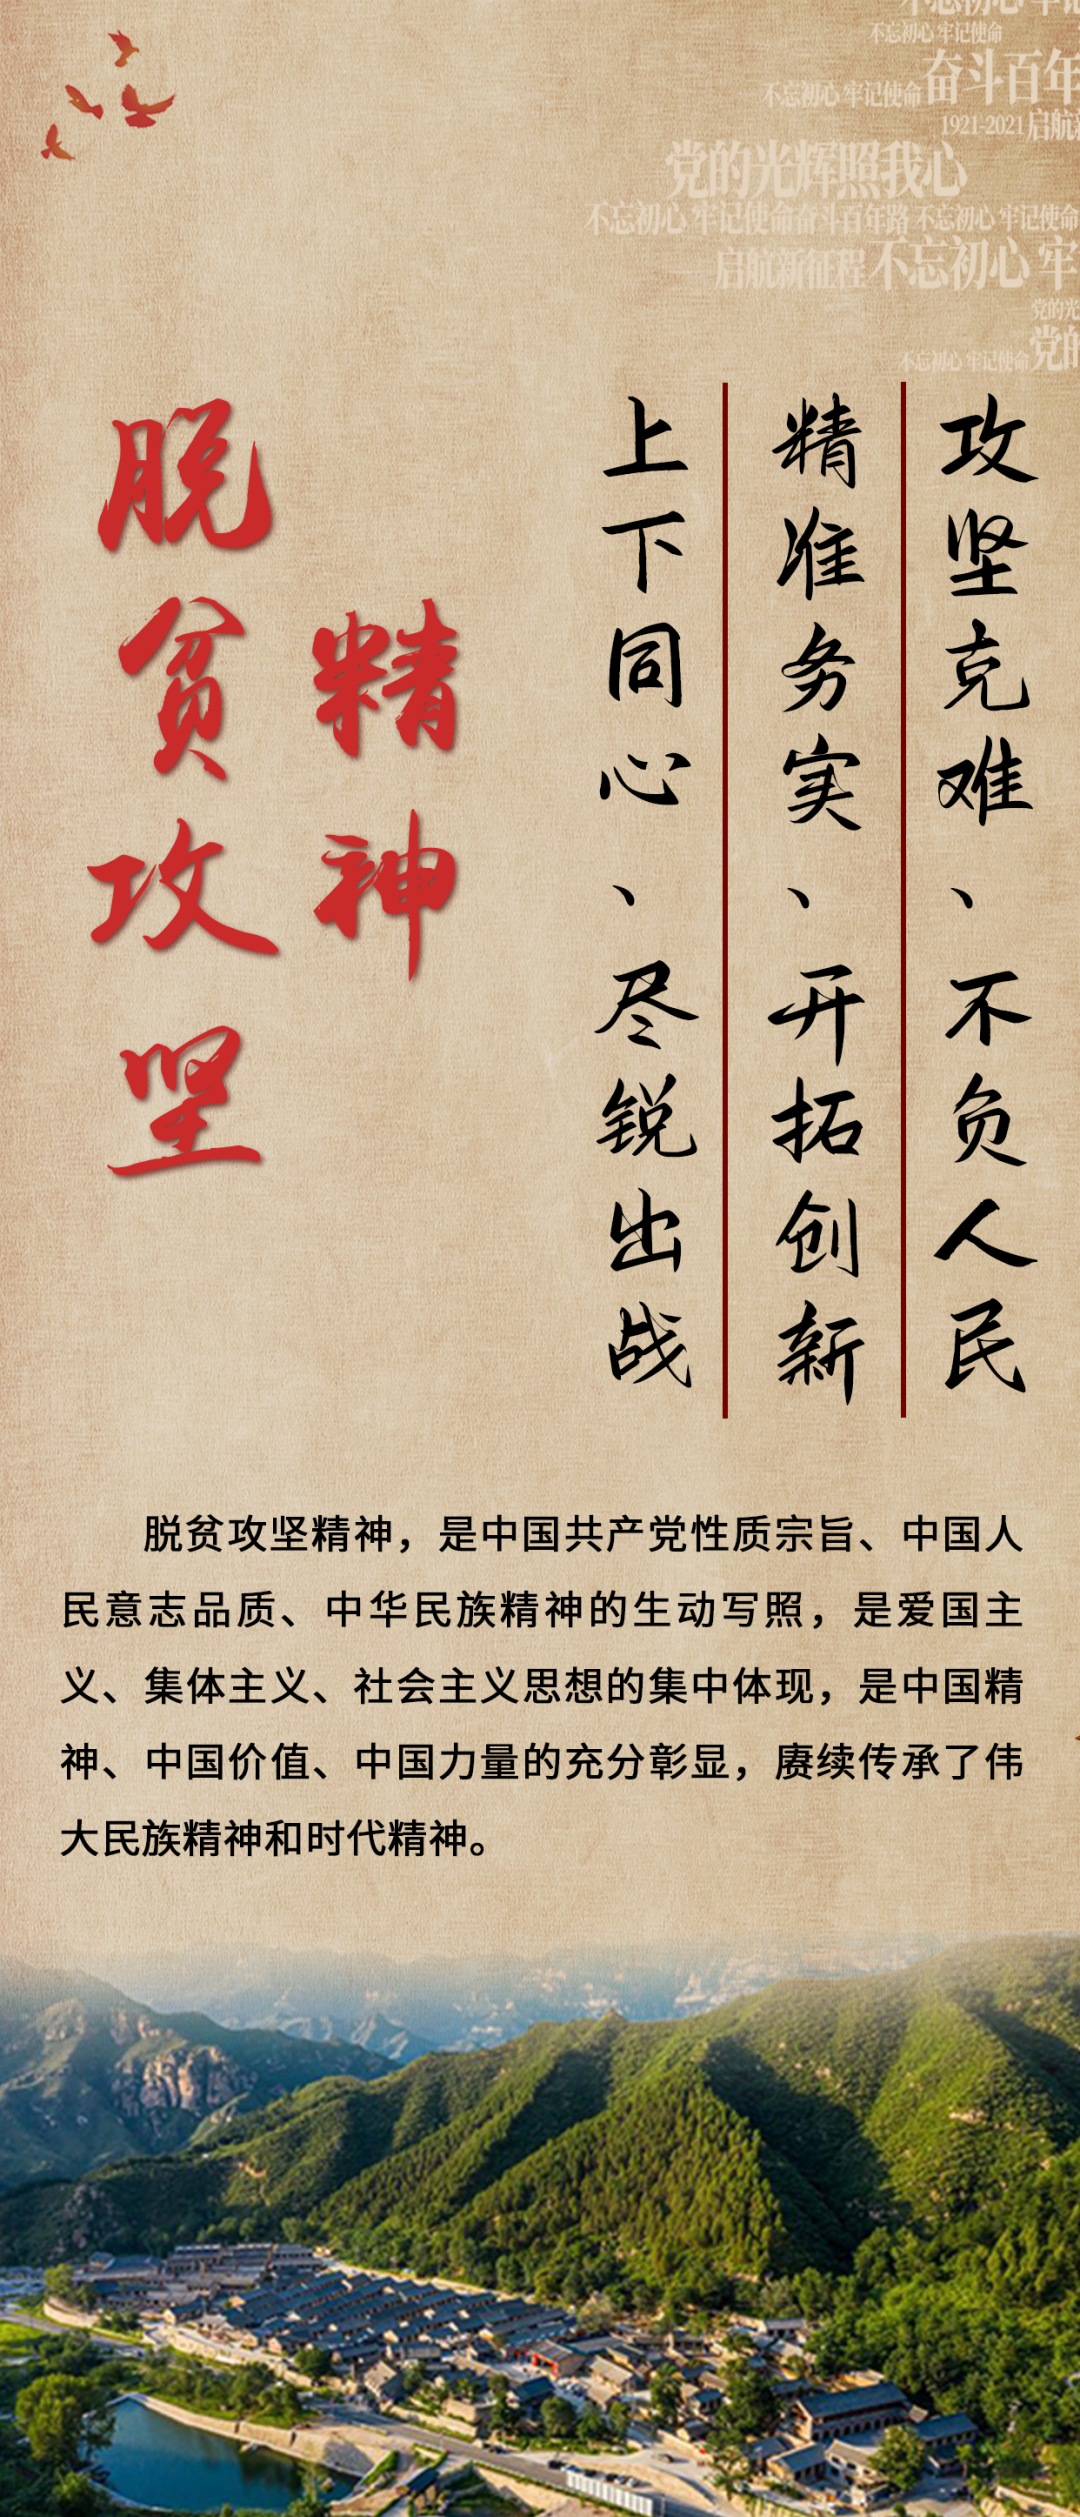 不忘初心 牢记使命
不忘初心 牢记使命 奋斗百年
1921-2021 启航新
党的光辉照我心
不忘初心 牢记使命 奋斗百年路 不忘初心 牢记使命
启航新征程 不忘初心 牢
党的光
不忘初心 牢记使命 党的
脱贫攻坚
精神
上下同心、尽锐出战
精准务实、开拓创新
攻坚克难、不负人民
脱贫攻坚精神，是中国共产党性质宗旨、中国人
民意志品质、中华民族精神的生动写照，是爱国主
义、集体主义、社会主义思想的集中体现，是中国精
神、中国价值、中国力量的充分彰显，赓续传承了伟
大民族精神和时代精神。